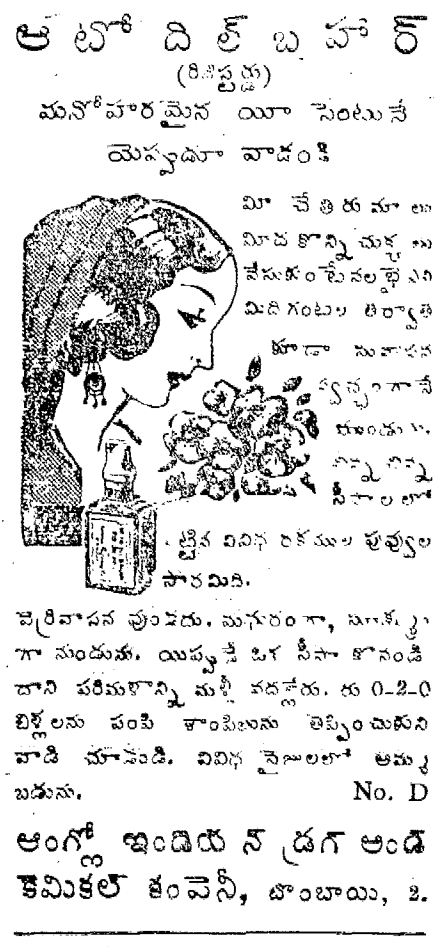 ఆటో దిల్ బహార్
(రిజిస్టర్డు)
మనోహరమైన యీ సెంటునే
యెప్పుడూ వాడండి
మీ చేతిరుమాలు
మీద కొన్ని చుక్కలు
వేసుకుంటే నల్భై ఎని
మిదిగంటల తర్వాత
కూడా సువాసన
స్వచ్ఛంగానే
వుండును.
చిన్న చిన్న
సీసాలలో
ట్టిన వివిధ రకముల పువ్వుల
సారమిది.
వెర్రివాసన వుండదు. మధురంగా, సూక్ష్మ
గా నుండును. యిప్పుడే ఒక సీసా కొనండి
దాని పరిమళాన్ని మళ్లీ వదల్లేరు. రు 0-2-0
బిళ్లలను పంపి శాంపిలును తెప్పించుకుని
వాడి చూడండి. వివిధ సైజులలో అమ్మ
బడును. No. D
ఆంగ్లో ఇండియన్ డ్రగ్ అండ్
కెమికల్ కంపెనీ, బొంబాయి, 2.